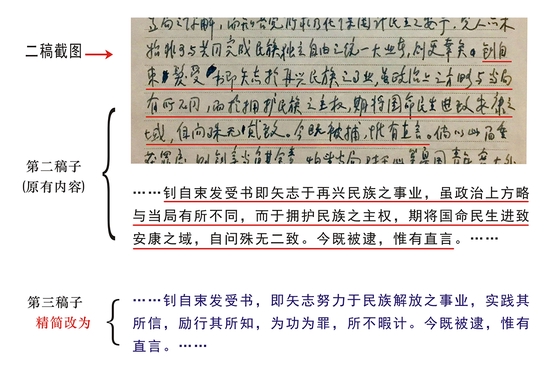 二稿截图
完成民族独立自由之统一大业 钊自
束发受书即矢志于再兴民族之事业，虽政治上之方略与当局
有所不同，而于拥护民族之主权，期将国命民生进致安康之
域，自问殊无二致。今既被捕，惟有直言。倘以此
第二稿子
(原有内容)
……钊自束发受书即矢志于再兴民族之事业，虽政治上方略
与当局有所不同，而于拥护民族之主权，期将国命民生进致
安康之域，自问殊无二致。今既被逮，惟有直言。……
第三稿子
精简改为
……钊自束发受书，即矢志努力于民族解放之事业，实践其
所信，励行其所知，为功为罪，所不暇计。今既被逮，惟有
直言。……